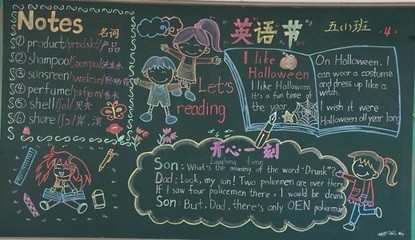 Notes 名词
① product/
② shampoo/
③ sunsreen/
④ perfume/
⑤ shell/
⑥ shore/
Let's
reading
英语节
五(1)班
4
I like
Halloween
I like Halloween
It's a fun time of
the year.
On Halloween, I
can wear a costume
and dress up like a
witch.
I wish it were
Halloween all year long
开心一刻
Laughing time
Son: What's the meaning of the word "Drunk"?
Dad: Look, my son! Two policmen are over there
If I saw four policemen there, I would be drunk
Son: But, Dad, there's only OEN policeman